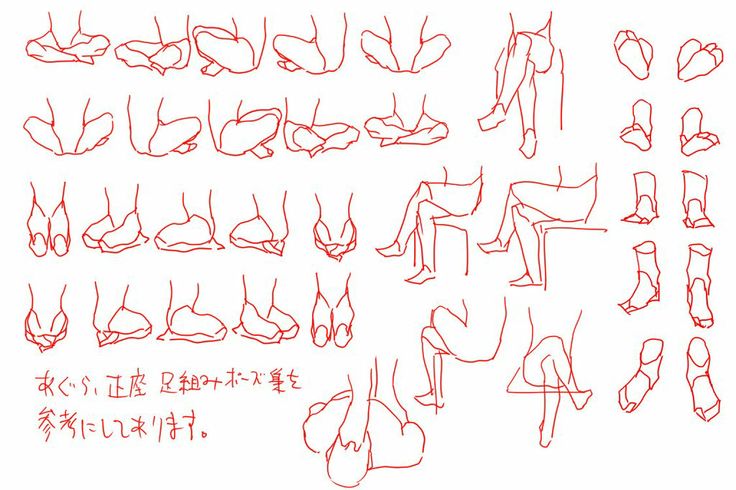 あぐら、正座 足組みポーズ集を
参考にしております。